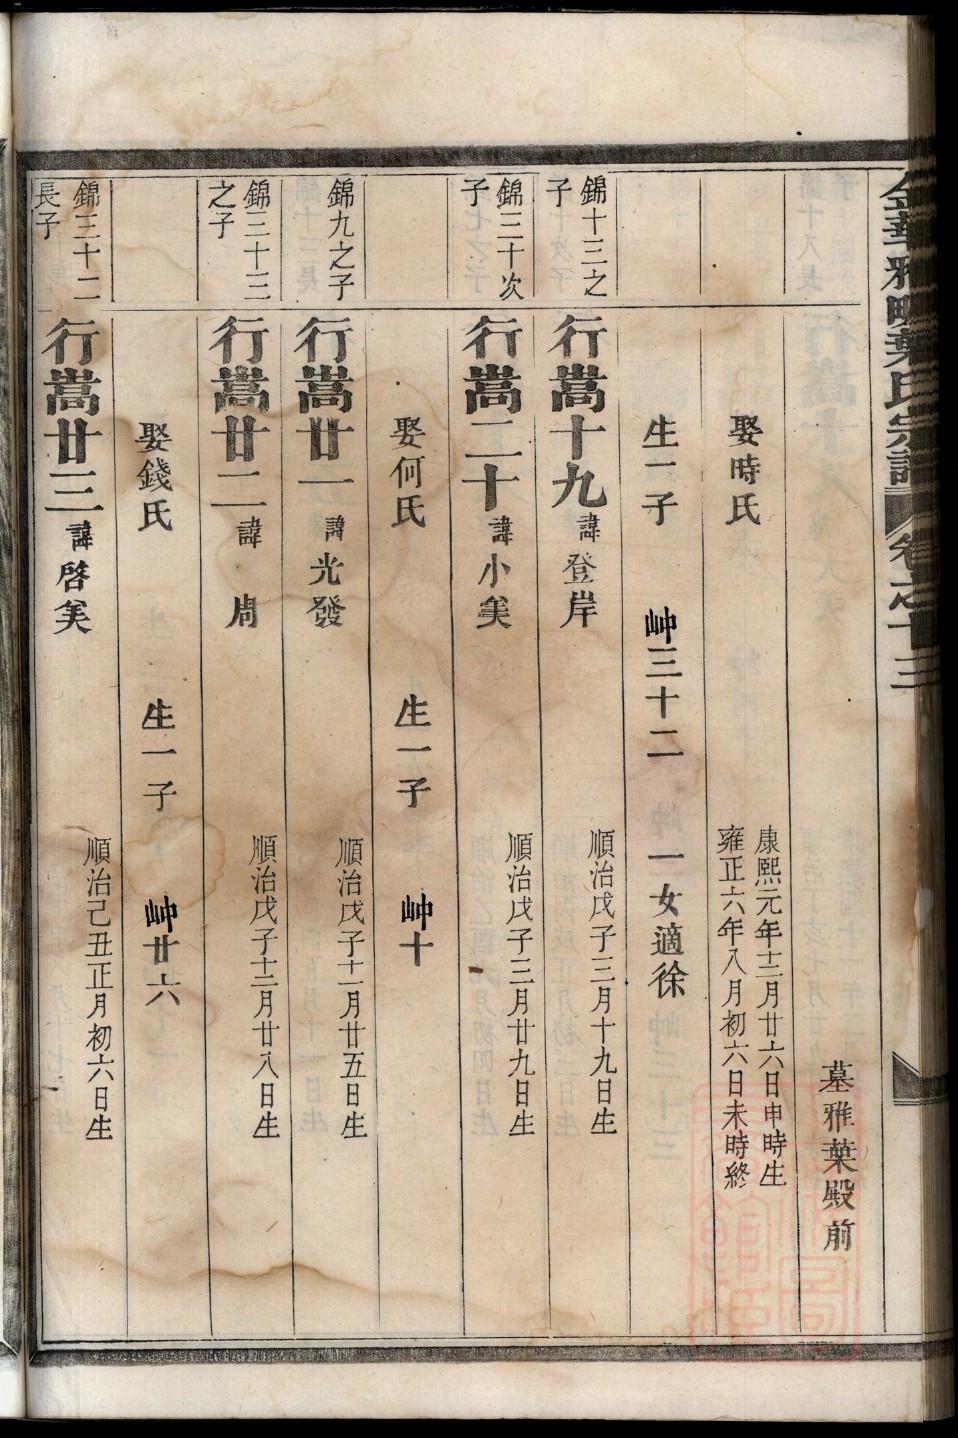 金華雅畈葉氏宗譜 卷之十三
墓雅葉殿前
娶時氏 康熙元年十二月廿六日申時生
雍正六年八月初六日未時終
生一子 𡵚三十二 一女適徐
錦十三之子
行嵩十九 諱登岸 順治戊子三月十九日生
錦三十次子
行嵩二十 諱小美 順治戊子三月廿九日生
娶何氏 生一子 𡵚十
錦九之子
行嵩廿一 諱光發 順治戊子十一月廿五日生
錦三十三之子
行嵩廿二 諱周 順治戊子十二月廿八日生
娶錢氏 生一子 𡵚廿六
錦三十二長子
行嵩廿三 諱啓美 順治己丑正月初六日生